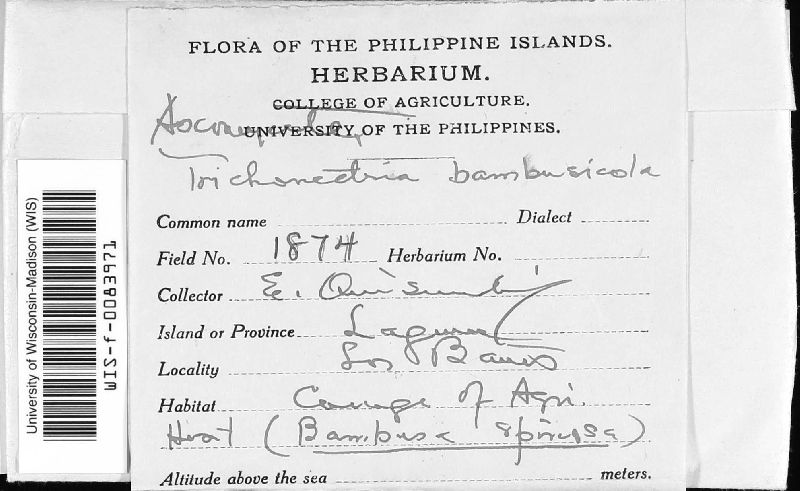 FLORA OF THE PHILIPPINE ISLANDS.
HERBARIUM.
COLLEGE OF AGRICULTURE.
UNIVERSITY OF THE PHILIPPINES.
Ascomycetes
Trichonectria bambusicola
Common name Dialect
Field No. 1874 Herbarium No.
Collector E. Quisumbing
Island or Province Laguna
Locality Los Banos
Habitat College of Agri.
Host (Bambusa spinosa)
Altitude above the sea meters.
University of Wisconsin-Madison (WIS)
WIS-f-0083971